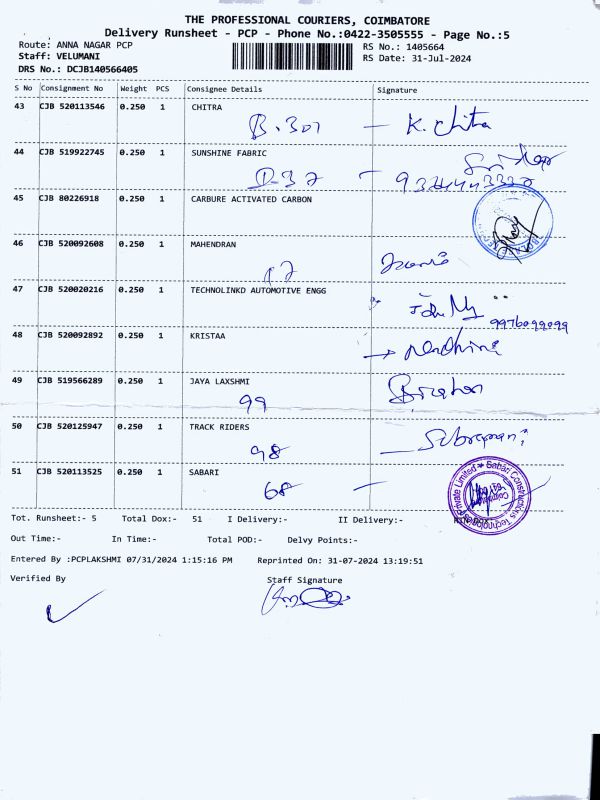 THE PROFESSIONAL COURIERS, COIMBATORE
Delivery Runsheet - PCP - Phone No.:0422-3505555 - Page No.:5
Route: ANNA NAGAR PCP RS No.: 1405664
Staff: VELUMANI RS Date: 31-Jul-2024
DRS No.: DCJB140566405
S No Consignment No Weight PCS Consignee Details Signature
43 CJB 520113546 0.250 1 CHITRA
B.301 — K. Chitra
44 CJB 519922745 0.250 1 SUNSHINE FABRIC
D-37
45 CJB 80226918 0.250 1 CARBURE ACTIVATED CARBON
46 CJB 520092608 0.250 1 MAHENDRAN
17
47 CJB 520020216 0.250 1 TECHNOLINKD AUTOMOTIVE ENGG
9976099099
48 CJB 520092892 0.250 1 KRISTAA
49 CJB 519566289 0.250 1 JAYA LAXSHMI
99
50 CJB 520125947 0.250 1 TRACK RIDERS
98
51 CJB 520113525 0.250 1 SABARI
68 —
Private Limited * Sabari Constructions Technologies
Tot. Runsheet:- 5 Total Dox:- 51 I Delivery:- II Delivery:-
Out Time:- In Time:- Total POD:- Delvy Points:-
Entered By :PCPLAKSHMI 07/31/2024 1:15:16 PM Reprinted On: 31-07-2024 13:19:51
Verified By Staff Signature